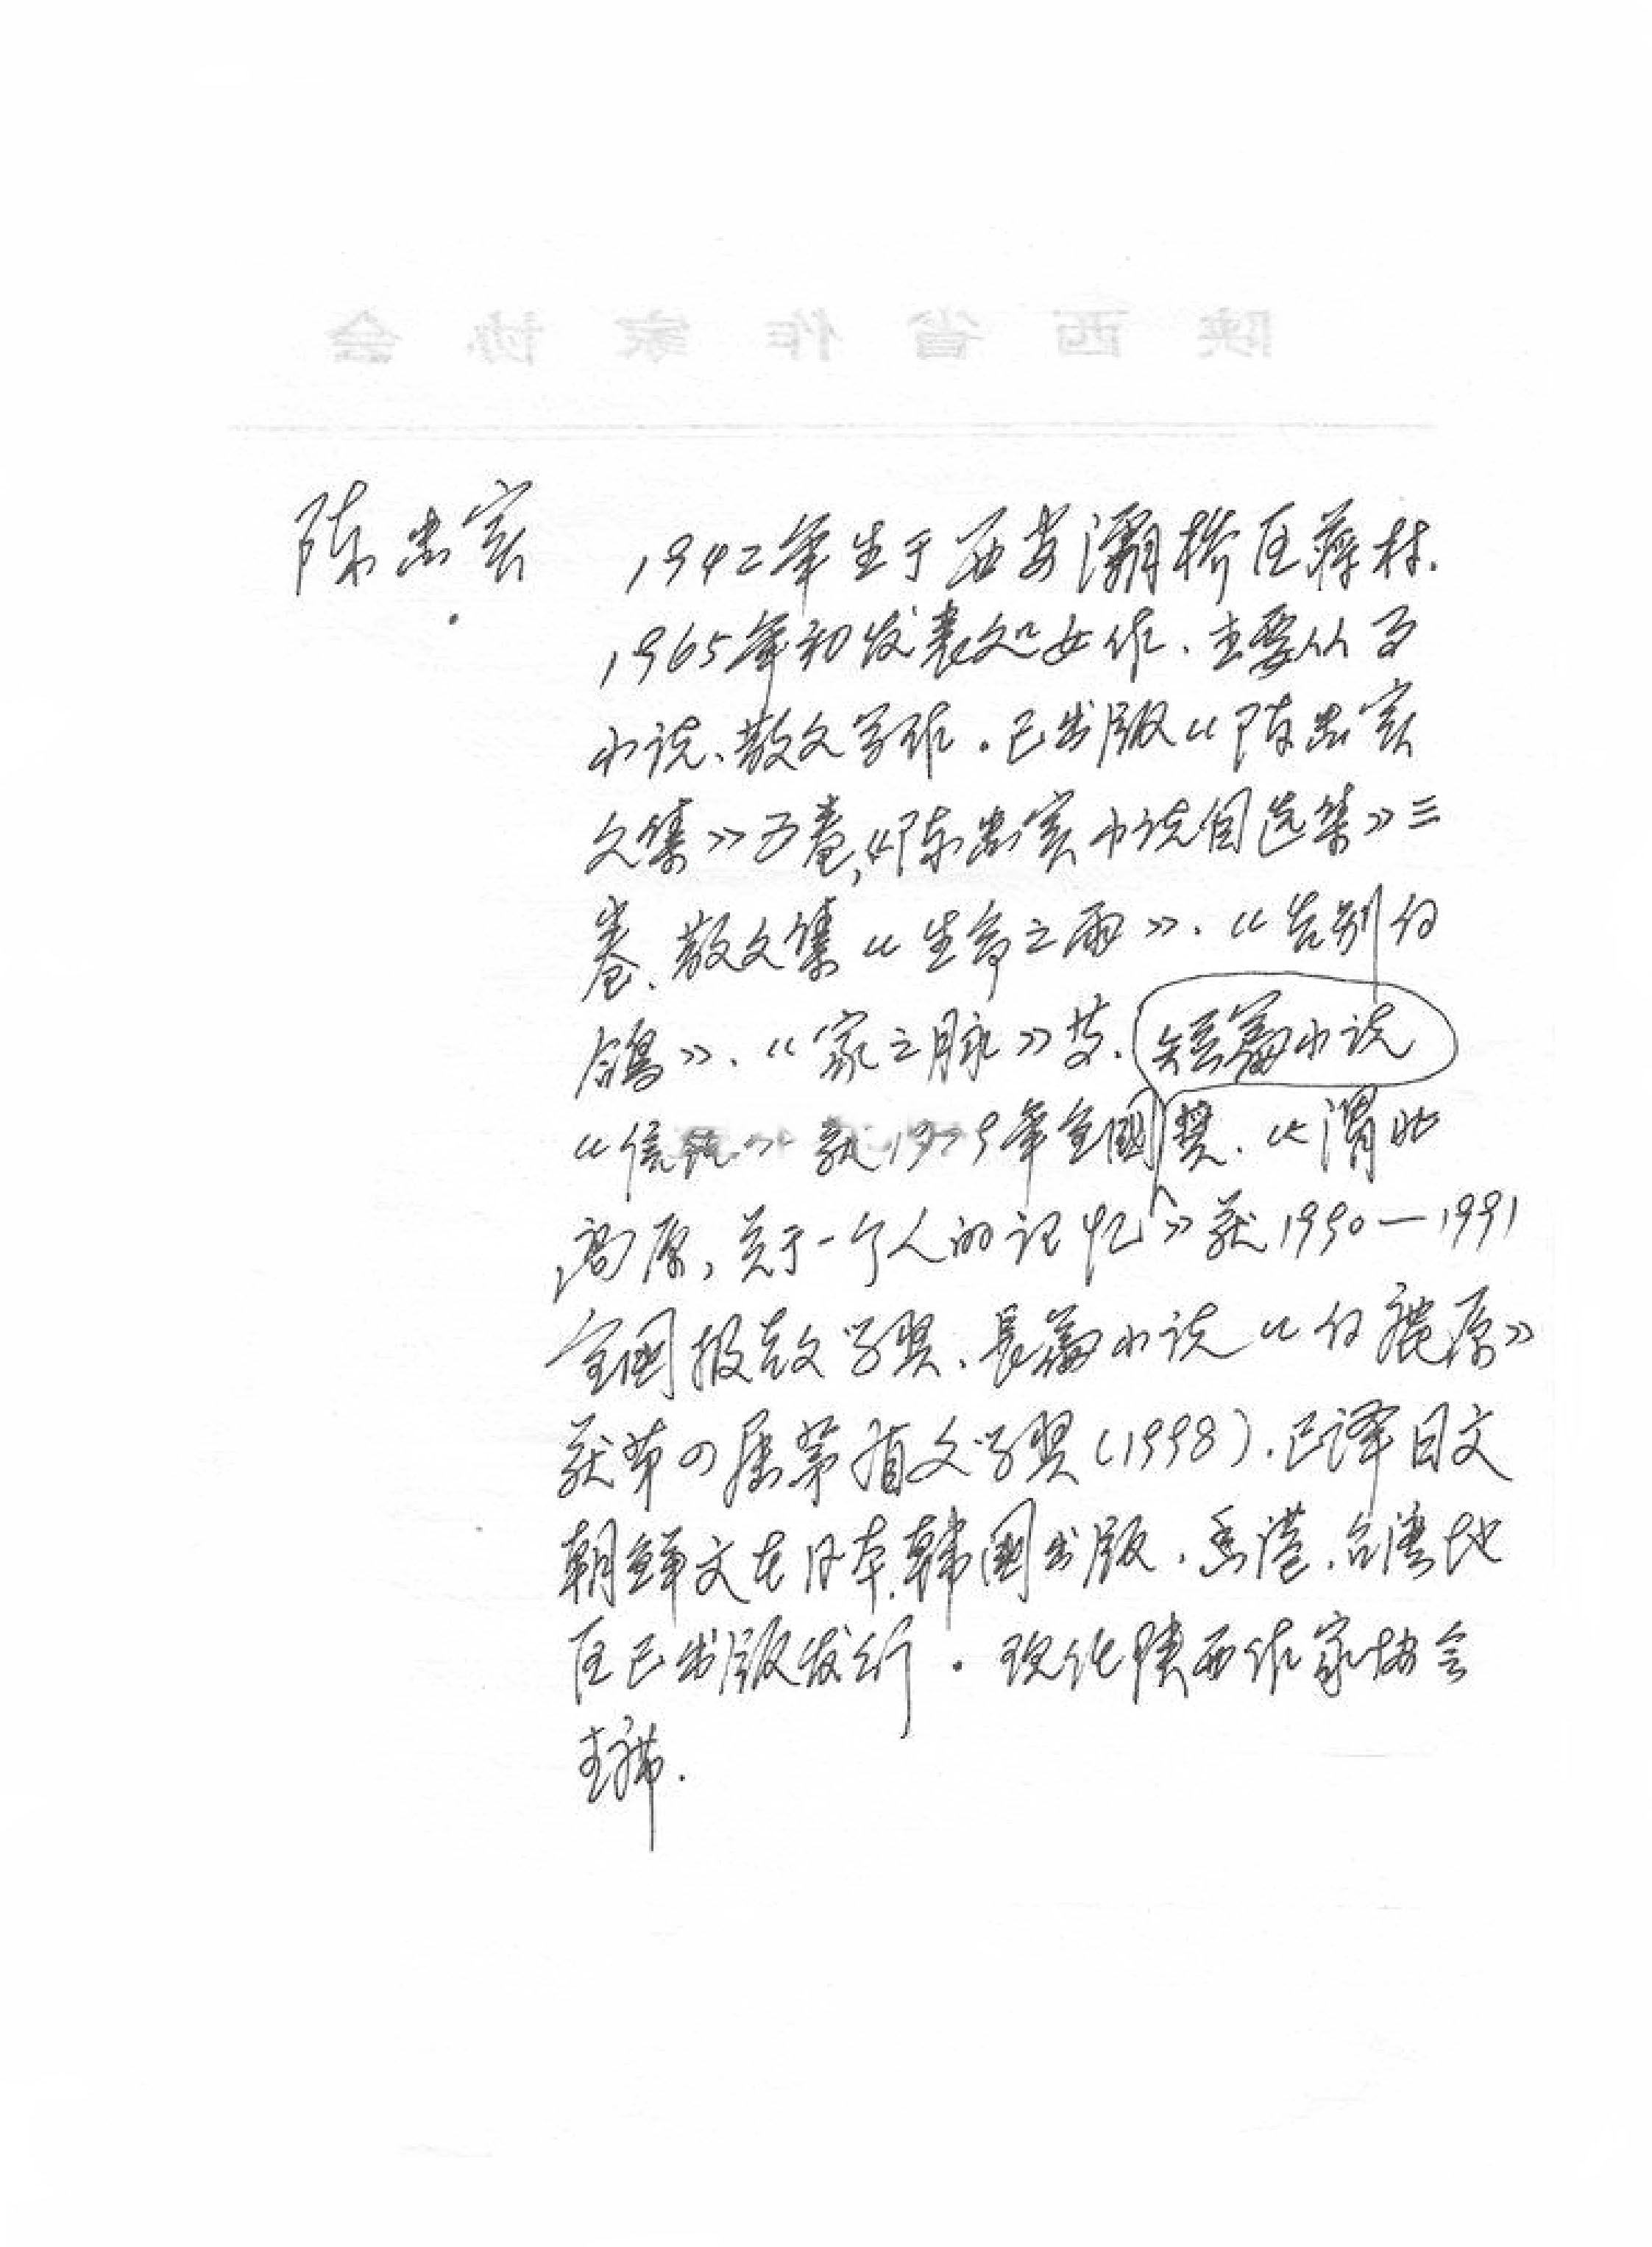 陕西省作家协会
陈忠实 1942年生于西安灞桥区蒋村.
1965年初发表处女作、主要从事
小说、散文写作.已出版《陈忠实
文集》五卷,《陈忠实小说自选集》三
卷、散文集《生命之雨》、《告别白
鸽》、《家之脉》等.短篇小说
《信任》获1979年全国奖.《渭北
高原,关于一个人的记忆》获1990—1991
全国报告文学奖、长篇小说《白鹿原》
获第四届茅盾文学奖(1998).已译日文
朝鲜文在日本、韩国出版.香港、台湾地
区已出版发行.现任陕西作家协会
主席.